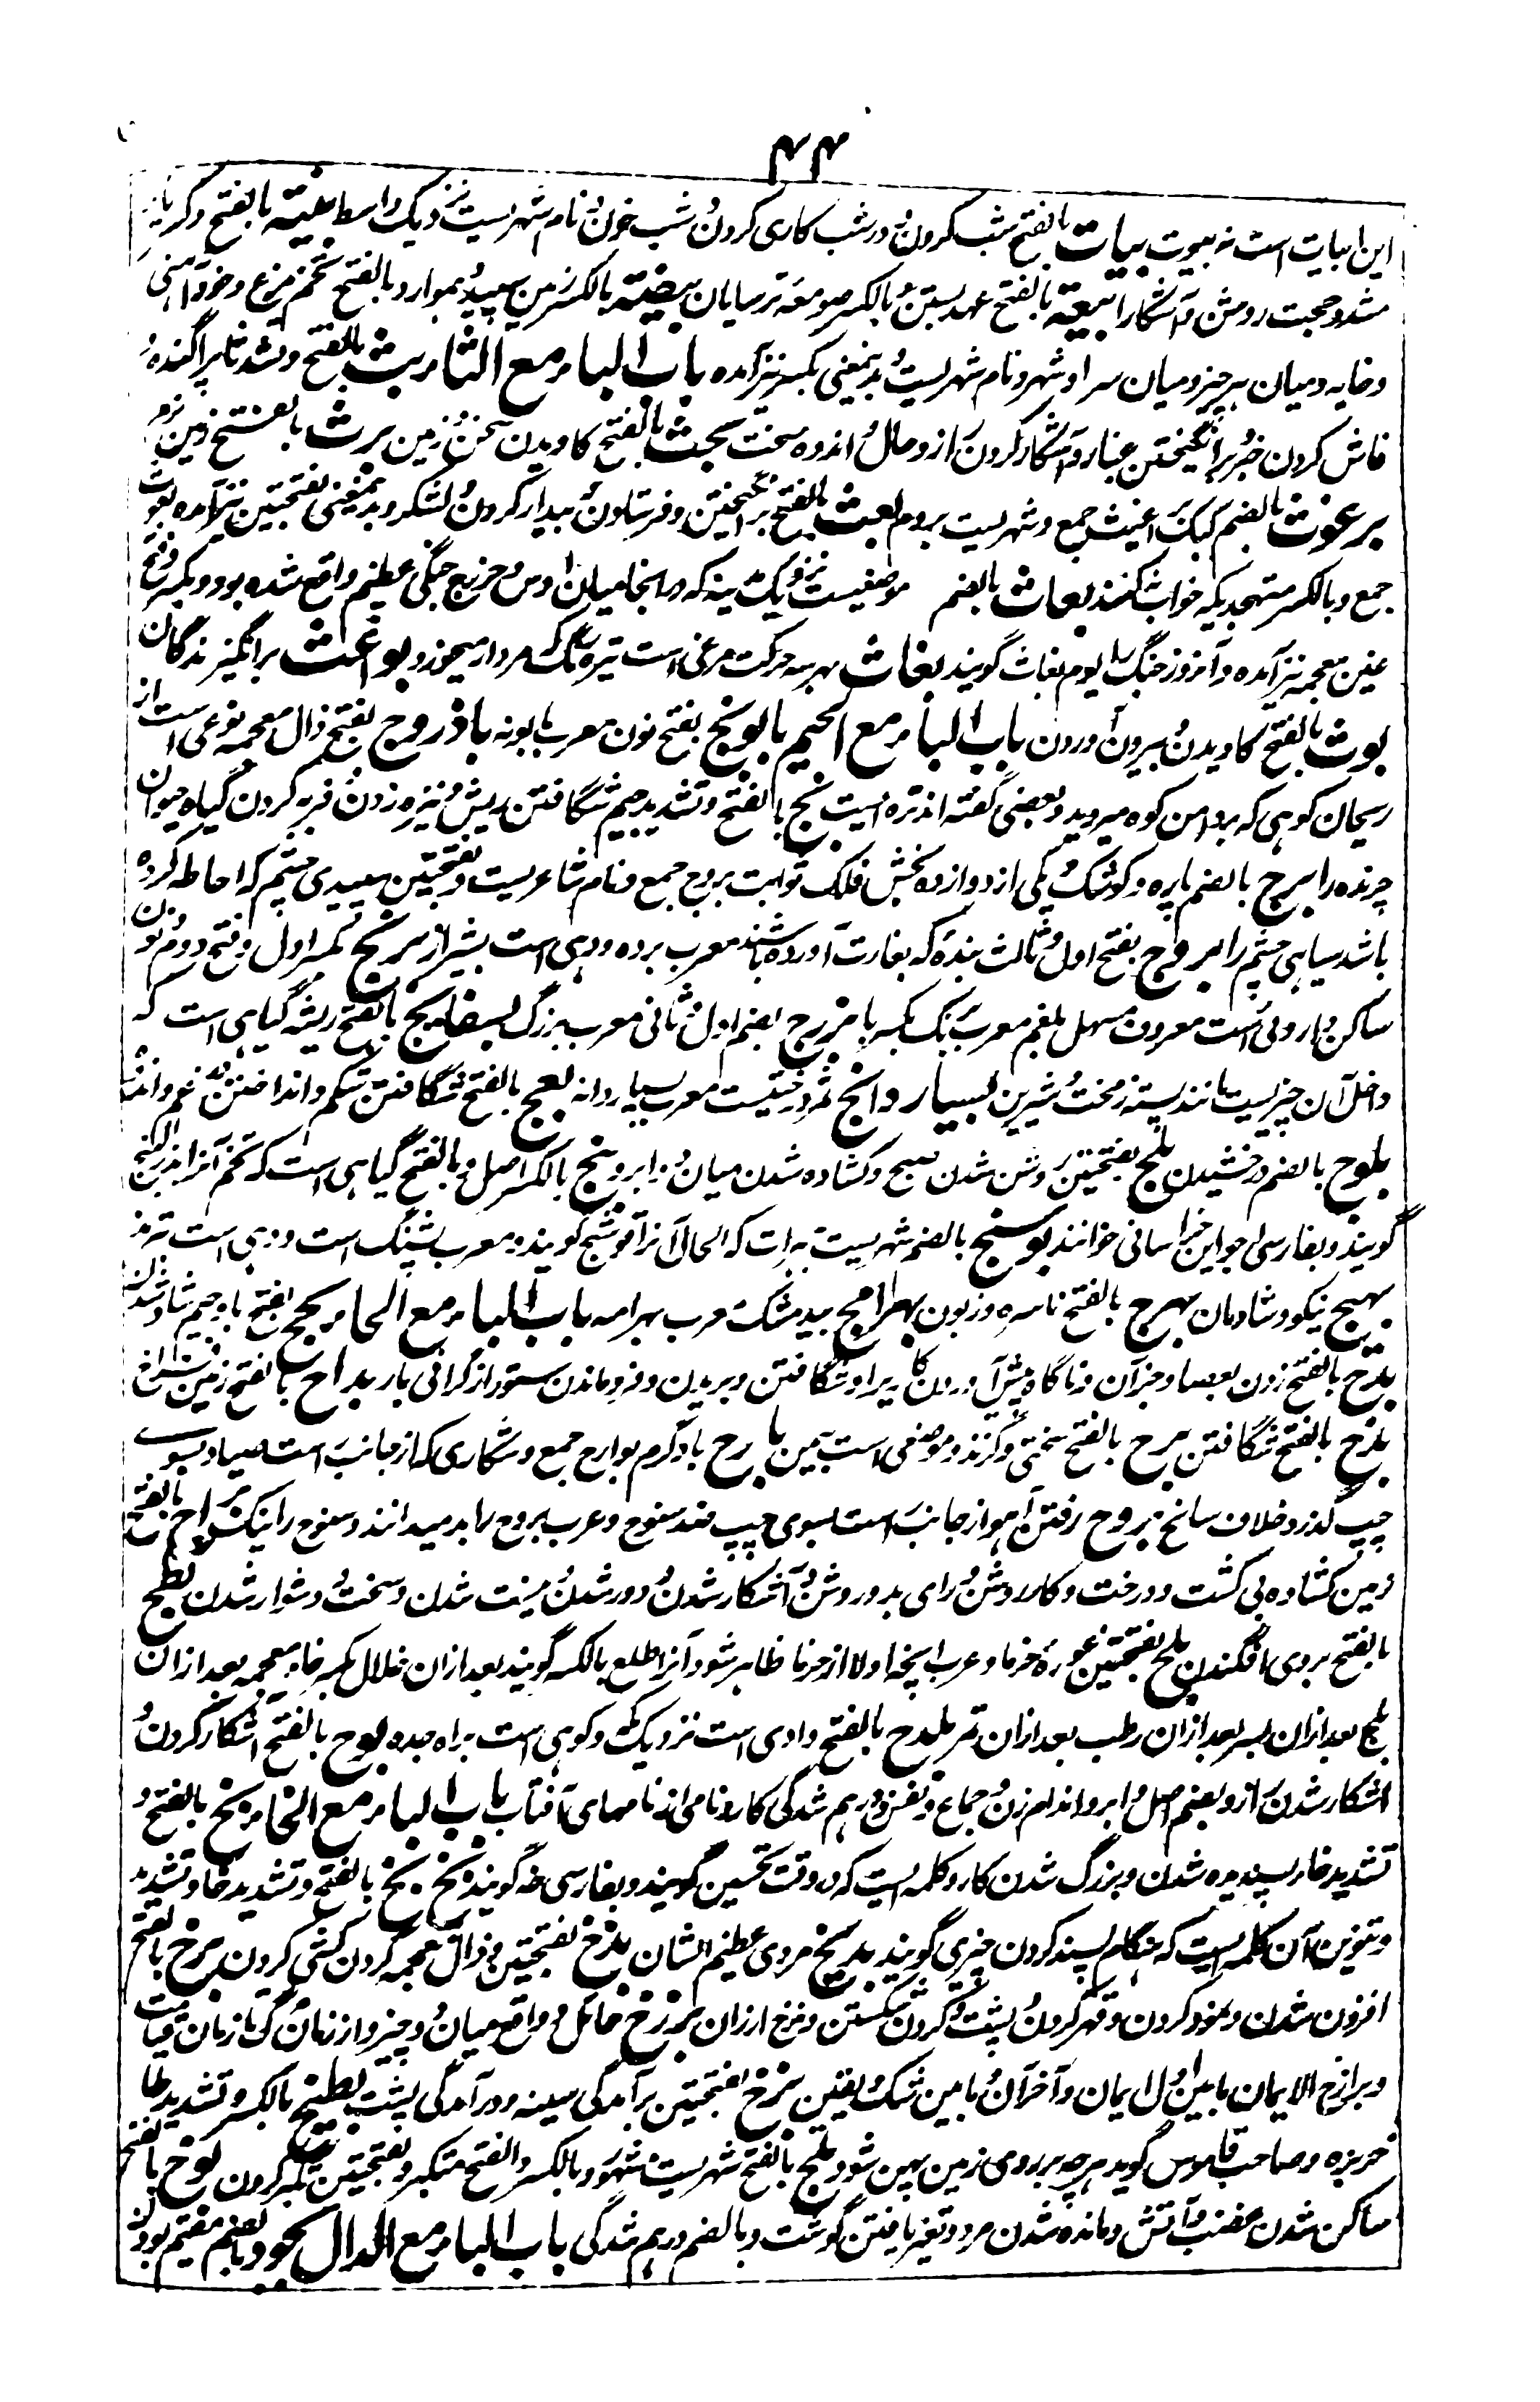 ۴۴
این ابیات است نه بیوت بیات بالفتح شب کردن و در شب کاری کردن و شب خون و نام شهریست نزدیک واسط بینة بالفتح وکسر یاء
مشدد حجت روشن و آشکارا بیعة بالفتح عهد بستن و بالکسر صومعه ترسایان بیضة بالکسر زمین سپید و هموار و بالفتح تخم مرغ و خود آهنی
و خایه و میان هر چیز و میان سرا و شهر و نام شهریست و بدینمعنی بکسر نیز آمده باب الباء مع الثاء بث بالفتح و تشدید ثا پراگنده و
فاش کردن خبر و برانگیختن غبار و آشکار کردن راز و حال و اندوه سخت بحث بالفتح کاویدن سخن و زمین برث بالفتح زمین نرم
برغوث بالضم کیک براغیث جمع و شهریست بروم بعث بالفتح برانگیختن و فرستادن و بیدار کردن و لشکر و بدینمعنی بفتحتین نیز آمده بعوث
جمع و بالکسر متهجدیکه خواب نکند بعاث بالضم موضعیست نزدیک مدینه که در آنجا میان اوس و خزرج جنگی عظیم واقع شده بود و بکسر و فتح
غین معجمه نیز آمده و آنروز جنگ را یوم بغاث گویند بغاث بهر سه حرکت مرغی است تیره رنگ که مردار میخورد بواعث برانگیزندگان
بوث بالفتح کاویدن و بیرون آوردن باب الباء مع الجیم بابونج بفتح نون معرب بابونه باذروج بفتح ذال معجمه نوعی است از
ریحان کوهی که بر دامن کوه میروید و بعضی گفته اند تره ایست بج بالفتح و تشدید جیم شگافتن ریش و نیزه زدن و فربه کردن گیاه حیوان
چرنده را برج بالضم پاره و کوشک و یکی از دوازده بخش فلک ثوابت بروج جمع و نام شاعریست و بفتحتین سپیدی چشم که احاطه کرده
باشد سیاهی چشم را بردج بفتح اول و ثالث بنده که بغارت آورده باشند معرب برده و دهی است بشیراز برنج بکسر اول و فتح دوم و نون
ساکن داروئی است معروف مسهل بلغم معرب برنک بکسر با بزرج بضم اول و ثانی معرب بزرگ بسفایج بالفتح ریشه گیاهی است که
داخل آن چیزیست مانند پسته زمخت و شیرین بسیاردانج ثمر درختیست معرب بسیار دانه بعج بالفتح شگافتن شکم و انداختن غم و اندوه
بلوج بالضم درخشیدن بلج بفتحتین روشن شدن صبح و کشاده شدن میان دو ابرو بنج بالکسر اصل و بالفتح گیاهی است که تخم آنرا بذر البنج
گویند و بفارسی اجواین خراسانی خوانند بوشنج بالضم شهریست بهرات که الحال آنرا فوشنج گویند معرب پشنگ است و دهی است ترمذ
بهیج نیکو و شادمان بهرج بالفتح ناسره و زبون بهرامج بید مشک معرب بهرامه باب الباء مع الحاء بجح بفتح با و جیم شاد شدن
بدح بالفتح زدن بعصا و جز آن و ناگاه پیش آوردن کاریرا و شگافتن و بریدن و فروماندن ستور از گرانی بار بداح بالفتح زمین فراخ
بذح بالفتح شگافتن برح بالفتح سختی و گزند و موضعی است بیمن بارح باد گرم بوارح جمع و شکاری که از جانب راست صیاد بسوی
چپ گذرد خلاف سانح بروح رفتن آهو از جانب راست بسوی چپ ضد سنوح و عرب بروح را بد میدانند و سنوح را نیک براح بالفتح
زمین کشاده بی کشت و درخت و کار روشن و رای بد و روشن و آشکار شدن و دور شدن و نیست شدن و سخت و دشوار شدن بطح
بالفتح بروی افگندن بلح بفتحتین غوره خرما و عرب آنچه اولا از خرما ظاهر شود آنرا طلع بالکسر گویند بعد ازان خلال بکسر خاء معجمه بعد ازان
بلح بعد ازان بسر بعد ازان رطب بعد ازان تمر بلدح بالفتح وادی است نزدیک مکه و کوهی است براه جده بوح بالفتح آشکار کردن و
آشکار شدن راز و بضم اصل و ابرو اندام زن و جماع و نفس و درهم شدگی کار و نامی از نامهای آفتاب باب الباء مع الخاء بخ بالفتح و
تشدید خاء پسندیده شدن و بزرگ شدن کار و کلمه ایست که در وقت تحسین گویند و بفارسی خه گویند بخ بخ بالفتح و تشدید خا و تشدید
و تنوین آن کلمه ایست که هنگام پسند کردن چیزی گویند بدیخ مردی عظیم الشان بذخ بفتحتین و ذال معجمه گردن کشی کردن برخ بالفتح
افزون شدن و نمود کردن و قهر کردن و پشت و گردن شکستن و نرخ ارزان برزخ حائل و واقع میان دو چیز و از زمان مرگ تا زمان قیامت
و برازخ الایمان مابین اول ایمان و آخر آن و مابین شک و یقین بزخ بفتحتین برآمدگی سینه و درآمدگی پشت بطیخ بالکسر و تشدید طا
خربزه و صاحب قاموس گوید هرچه بر روی زمین پهن شود بلخ بالفتح شهریست مشهور و بالکسر والفتح متکبر و بفتحتین تکبر کردن بوخ بالفتح
ساکن شدن غضب و آتش و مانده شدن مرد و تغیر یافتن گوشت و بالضم درهم شدگی باب الباء مع الدال بجود بالضم مقیم بودن